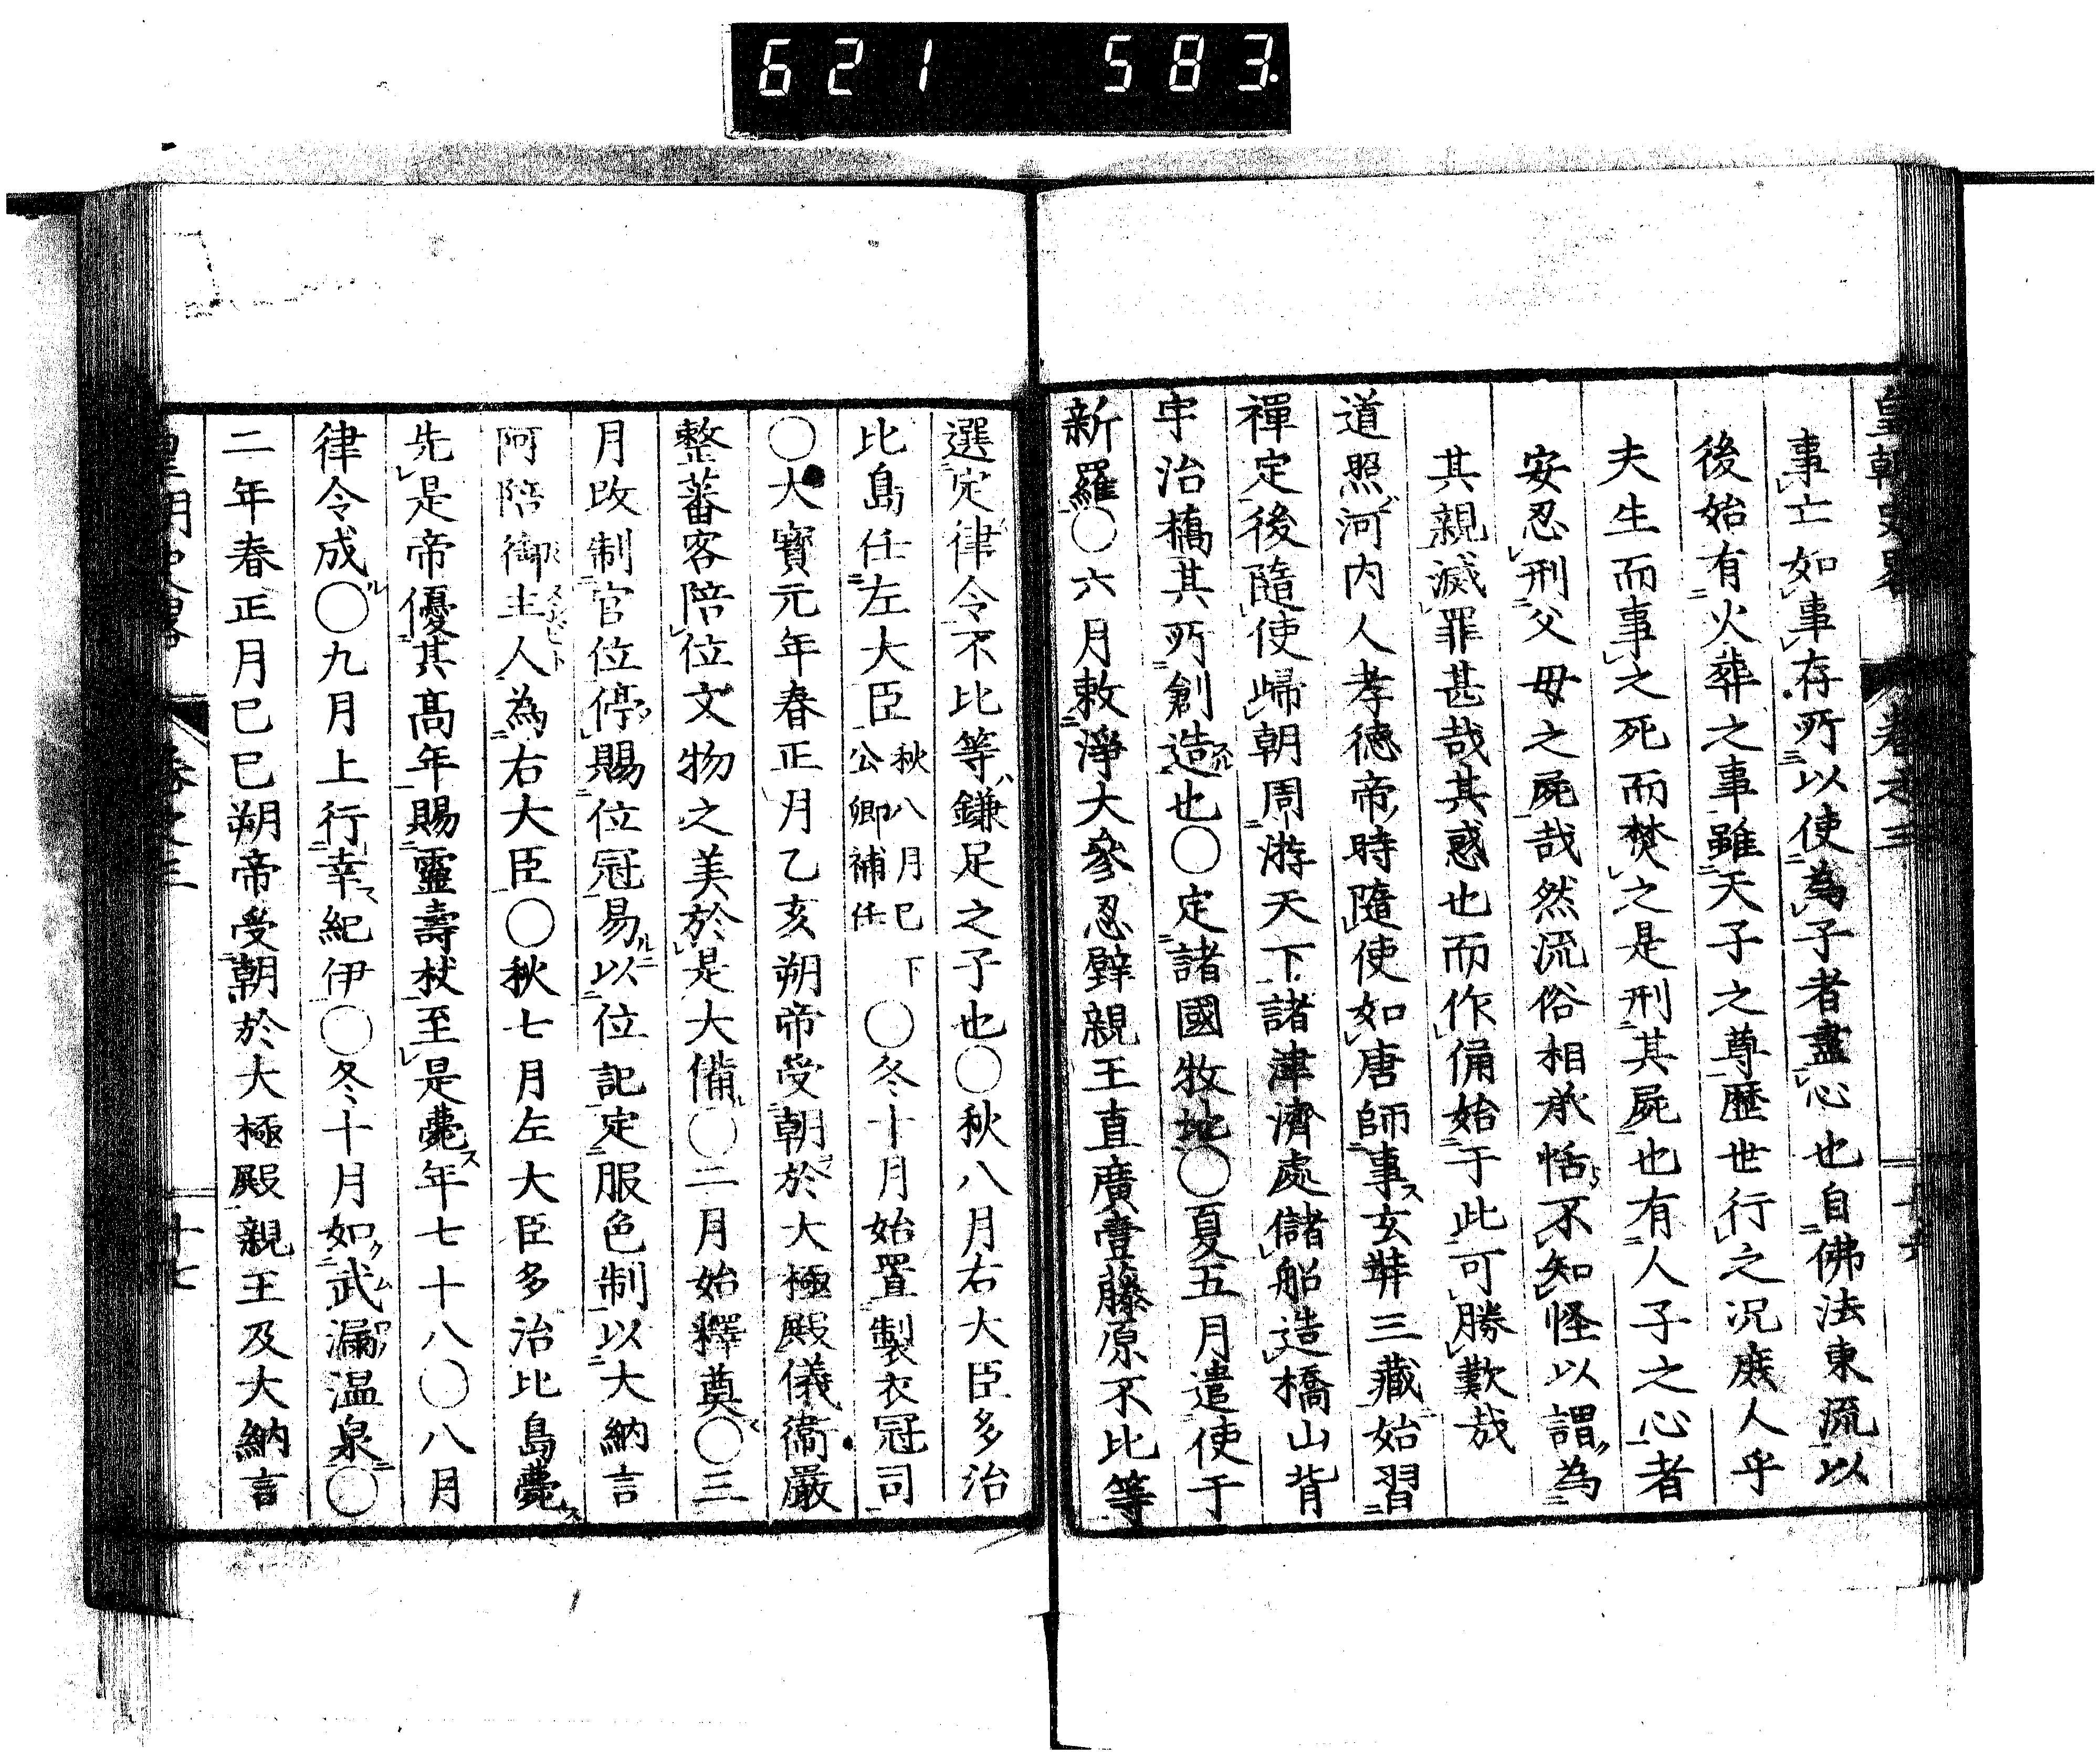 621 583.
皇朝史畧 卷之三
事亡如事存所以使為子者盡心也自佛法東流以
後始有火葬之事雖天子之尊歷世行之况庶人乎
夫生而事之死而焚之是刑其屍也有人子之心者
安忍刑父母之屍哉然流俗相承恬不知怪以謂為
其親滅罪甚哉其惑也而作俑始于此可勝歎哉
道照河内人孝徳帝時隨使如唐師事玄弉三藏始習
禪定後隨使歸朝周游天下諸津濟處儲船造橋山背
宇治橋其所創造也○定諸國牧地○夏五月遣使于
新羅○六月敕淨大參忍壁親王直廣壹藤原不比等
選定律令不比等鎌足之子也○秋八月右大臣多治
比島任左大臣秋八月已下公卿補任○冬十月始置製衣冠司
○大寶元年春正月乙亥朔帝受朝於大極殿儀衞嚴
整蕃客陪位文物之美於是大備○二月始釋奠○三
月改制官位停賜位冠易以位記定服色制以大納言
阿陪御主人為右大臣○秋七月左大臣多治比島薨
先是帝優其高年賜靈壽杖至是薨年七十八○八月
律令成○九月上行幸紀伊○冬十月如武漏温泉○
二年春正月已巳朔帝受朝於大極殿親王及大納言
皇朝史畧 卷之三 十七